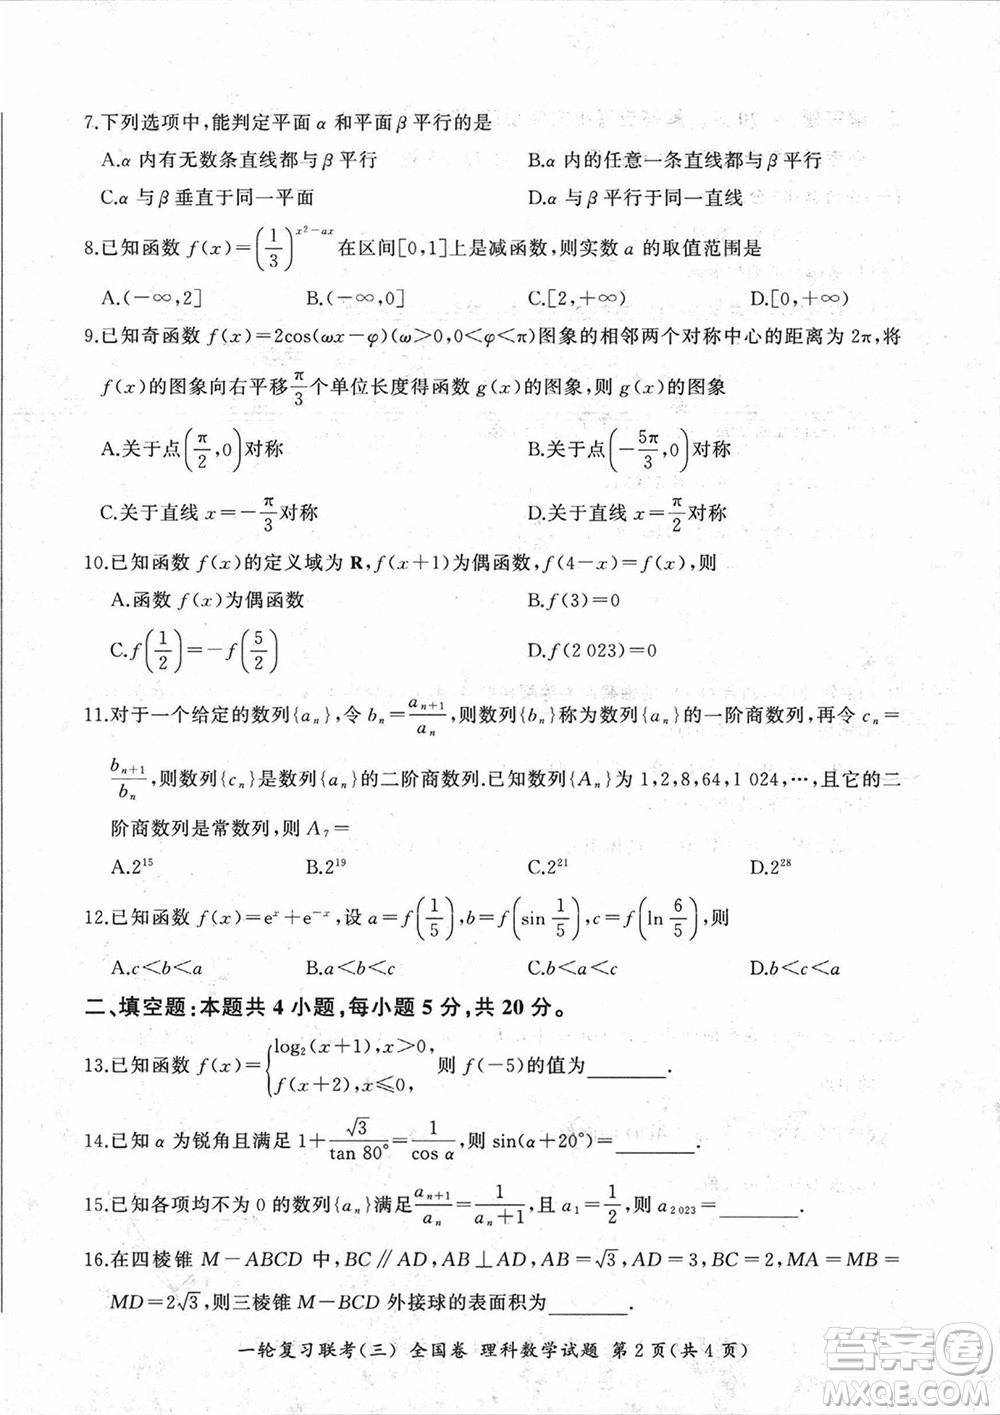 7.下列选项中,能判定平面 α 和平面 β 平行的是
A.α 内有无数条直线都与 β 平行 B.α 内的任意一条直线都与 β 平行
C.α 与 β 垂直于同一平面 D.α 与 β 平行于同一直线
8.已知函数 f(x)=(1/3)^(x²-ax) 在区间[0,1]上是减函数,则实数 a 的取值范围是
A.(-∞,2] B.(-∞,0] C.[2,+∞) D.[0,+∞)
9.已知奇函数 f(x)=2cos(ωx-φ)(ω>0,0<φ<π)图象的相邻两个对称中心的距离为 2π,将
f(x)的图象向右平移π/3个单位长度得函数 g(x)的图象,则 g(x)的图象
A.关于点(π/2,0)对称 B.关于点(-5π/3,0)对称
C.关于直线 x=-π/3对称 D.关于直线 x=π/2对称
10.已知函数 f(x)的定义域为 R,f(x+1)为偶函数,f(4-x)=f(x),则
A.函数 f(x)为偶函数 B.f(3)=0
C.f(1/2)=-f(5/2) D.f(2 023)=0
11.对于一个给定的数列{aₙ},令 bₙ=aₙ₊₁/aₙ,则数列{bₙ}称为数列{aₙ}的一阶商数列,再令 cₙ=
bₙ₊₁/bₙ,则数列{cₙ}是数列{aₙ}的二阶商数列.已知数列{Aₙ}为 1,2,8,64,1 024,…,且它的二
阶商数列是常数列,则 A₇=
A.2¹⁵ B.2¹⁹ C.2²¹ D.2²⁸
12.已知函数 f(x)=eˣ+e⁻ˣ,设 a=f(1/5),b=f(sin 1/5),c=f(ln 6/5),则
A.c<b<a B.a<b<c C.b<a<c D.a<c<b
二、填空题:本题共 4 小题,每小题 5 分,共 20 分。
13.已知函数 f(x)={log₂(x+1),x>0, f(x+2),x≤0, 则 f(-5)的值为________.
14.已知 α 为锐角且满足 1+√3/tan 80°=1/cos α,则 sin(α+20°)=________.
15.已知各项均不为 0 的数列{aₙ}满足aₙ₊₁/aₙ=1/(aₙ+1),且 a₁=1/2,则 a₂ ₀₂₃=________.
16.在四棱锥 M-ABCD 中,BC∥AD,AB⊥AD,AB=√3,AD=3,BC=2,MA=MB=
MD=2√3,则三棱锥 M-BCD 外接球的表面积为________.
一轮复习联考(三) 全国卷 理科数学试题 第 2 页(共 4 页)
答案圈
MXQE.COM